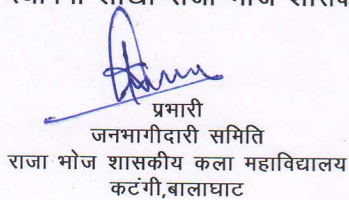 प्रभारी
जनभागीदारी समिति
राजा भोज शासकीय कला महाविद्यालय
कटंगी,बालाघाट